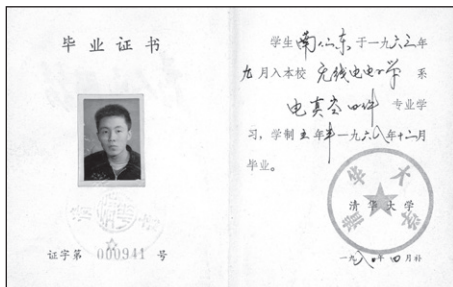 毕业证书
证字第 000941 号
学生南仁东于一九六三年
九月入本校无线电电子学系
电真空 专业学
习，学制五年半一九六八年十二月
毕业。
清华大学
清华大学
一九八〇年四月补